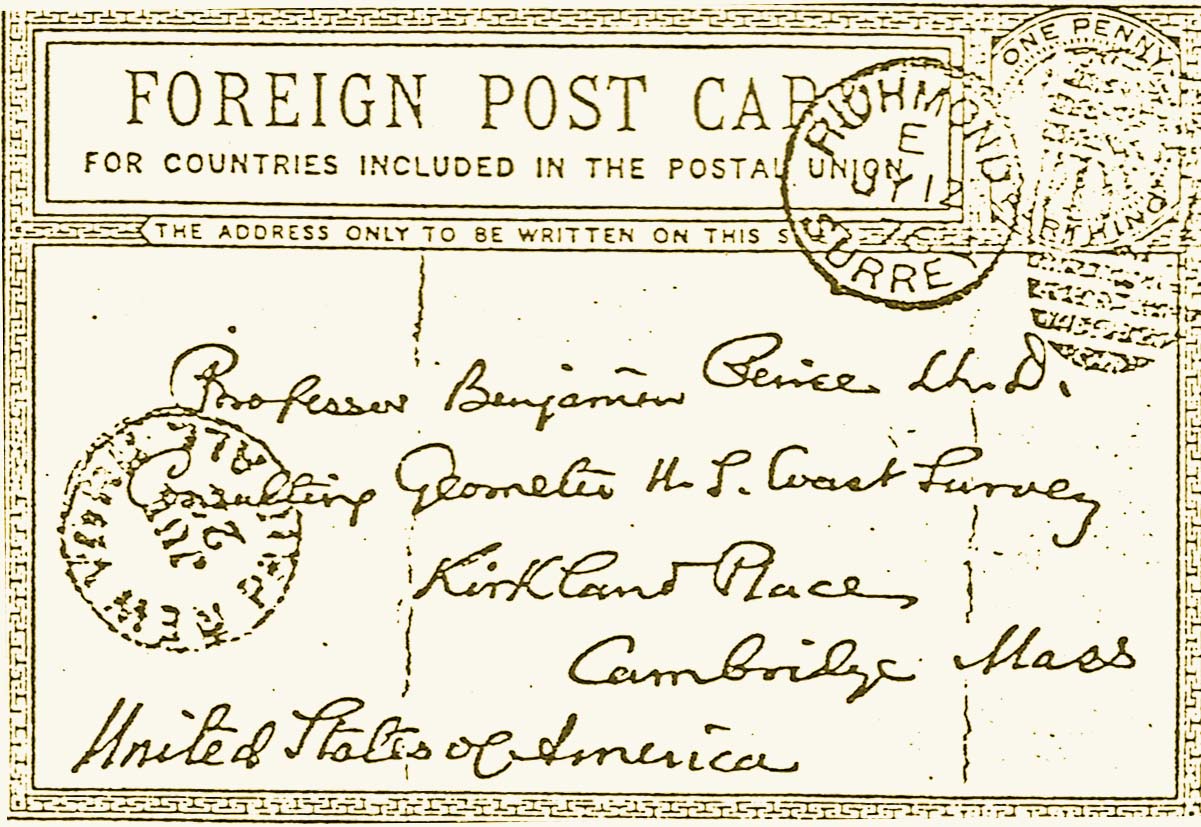 FOREIGN POST CARD
FOR COUNTRIES INCLUDED IN THE POSTAL UNION
THE ADDRESS ONLY TO BE WRITTEN ON THIS SIDE
ONE PENNY
FARTHING
RICHMOND
E
JY 12
SURREY
Professor Benjamin Peirce LL.D.
Consulting Geometer U.S. Coast Survey
Kirkland Place
Cambridge Mass
United States of America
NEW
JUL
2